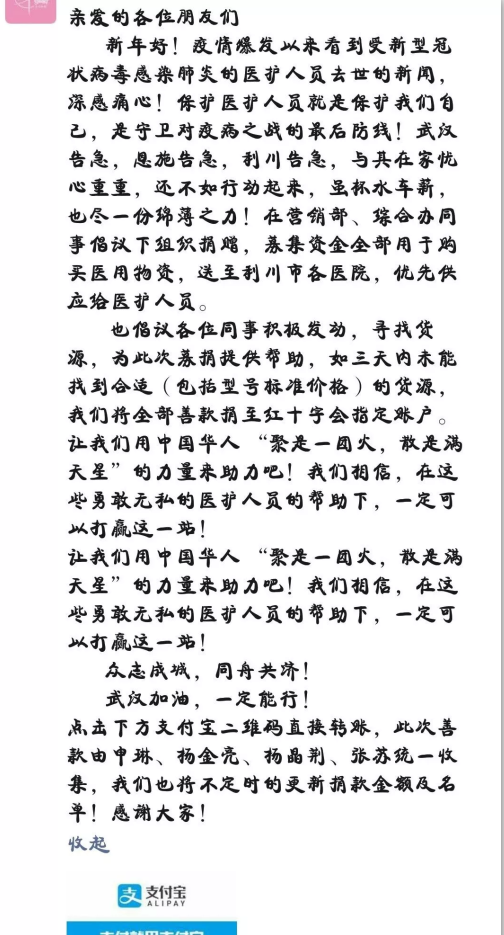 亲爱的各位朋友们
新年好！疫情爆发以来看到受新型冠
状病毒感染肺炎的医护人员去世的新闻，
深感痛心！保护医护人员就是保护我们自
己，是守卫对疫病之战的最后防线！武汉
告急，恩施告急，利川告急，与其在家忧
心重重，还不如行动起来，虽杯水车薪，
也尽一份绵薄之力！在营销部、综合办同
事倡议下组织捐赠，募集资金全部用于购
买医用物资，送至利川市各医院，优先供
应给医护人员。
也倡议各位同事积极发动，寻找货
源，为此次募捐提供帮助，如三天内未能
找到合适（包括型号标准价格）的货源，
我们将全部善款捐至红十字会指定账户。
让我们用中国华人 “聚是一团火，散是满
天星”的力量来助力吧！我们相信，在这
些勇敢无私的医护人员的帮助下，一定可
以打赢这一站！
让我们用中国华人 “聚是一团火，散是满
天星”的力量来助力吧！我们相信，在这
些勇敢无私的医护人员的帮助下，一定可
以打赢这一站！
众志成城，同舟共济！
武汉加油，一定能行！
点击下方支付宝二维码直接转账，此次善
款由申琳、杨金亮、杨晶荆、张苏统一收
集，我们也将不定时的更新捐款金额及名
单！感谢大家！
收起
支付宝
ALIPAY